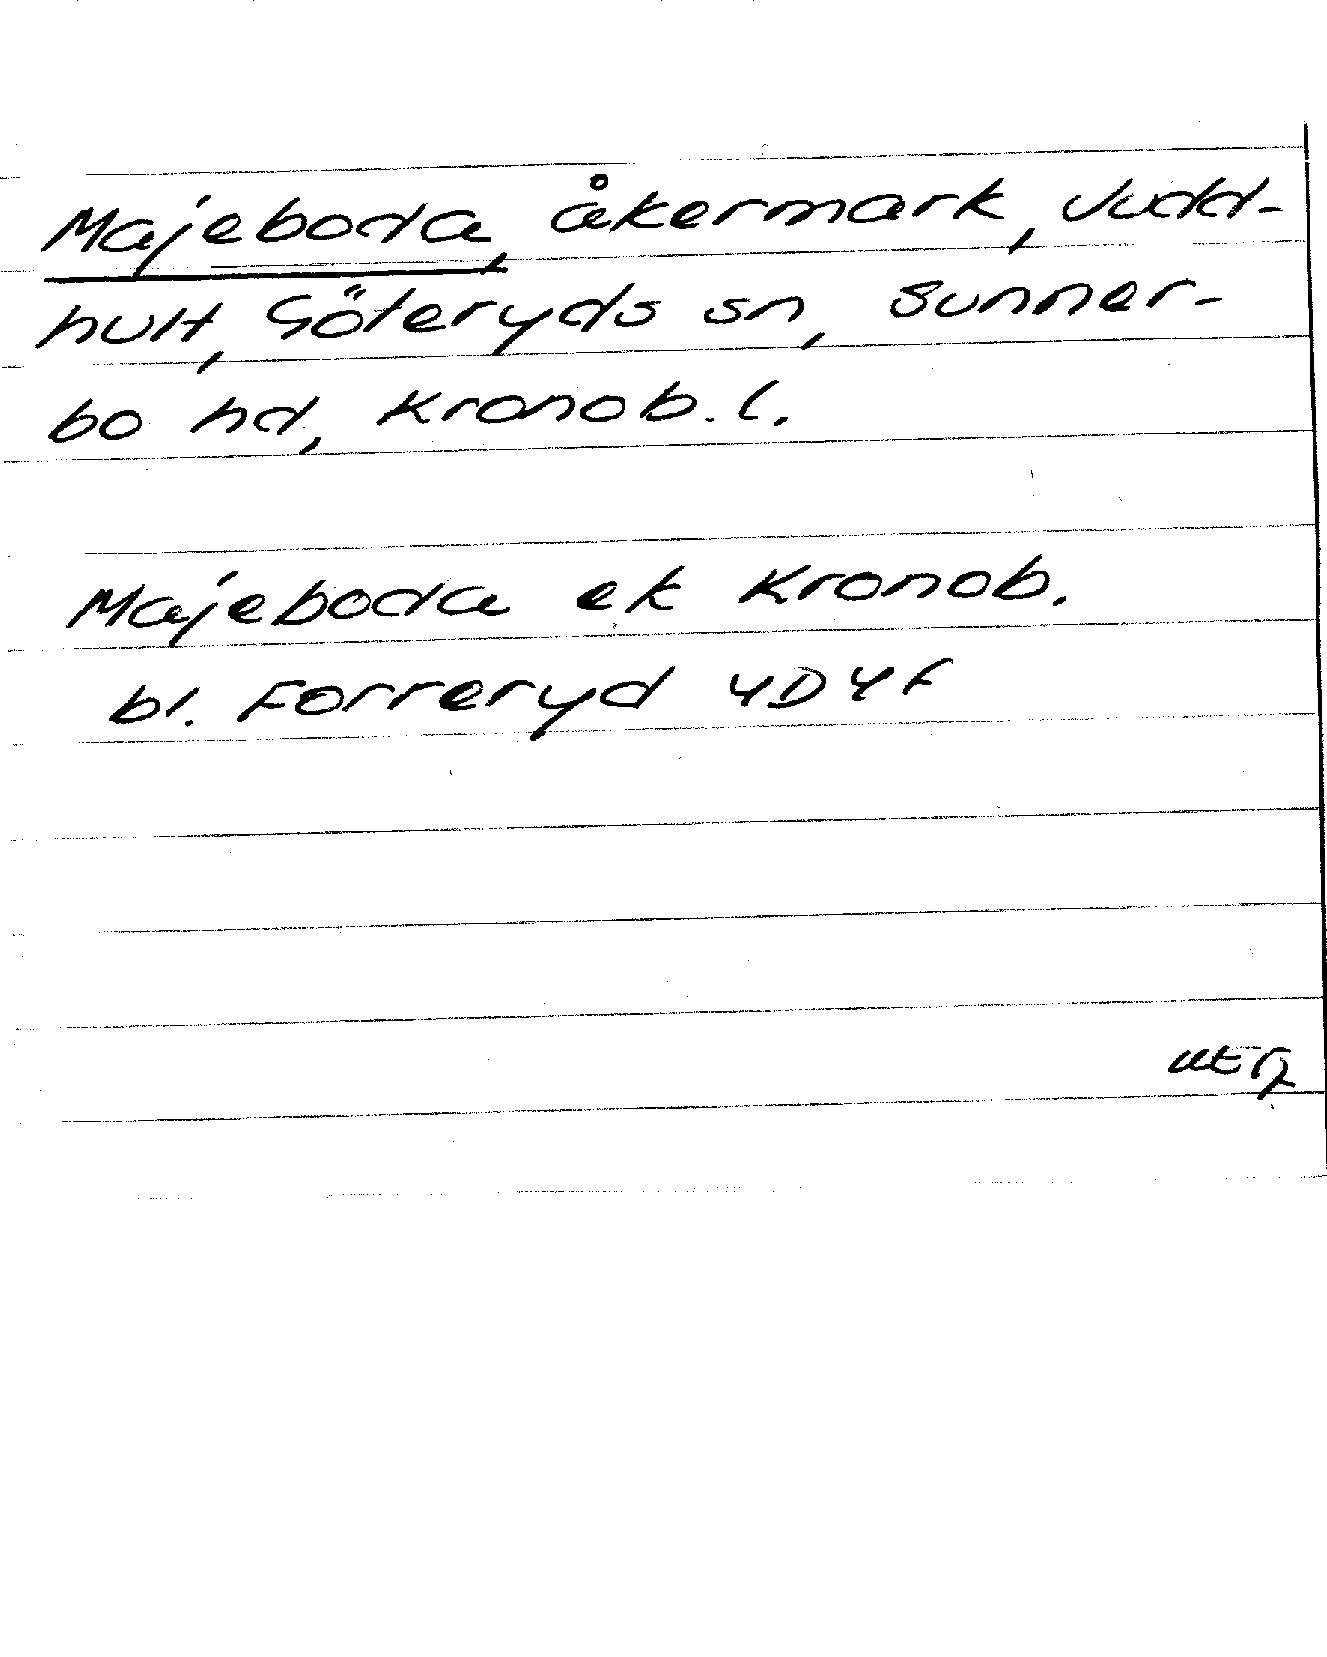 Majeboda, åkermark, Judd-
hult, Göteryds sn, Sunner-
bo hd, Kronob. l.
Majeboda ek Kronob.
bl. Forreryd 4D4f